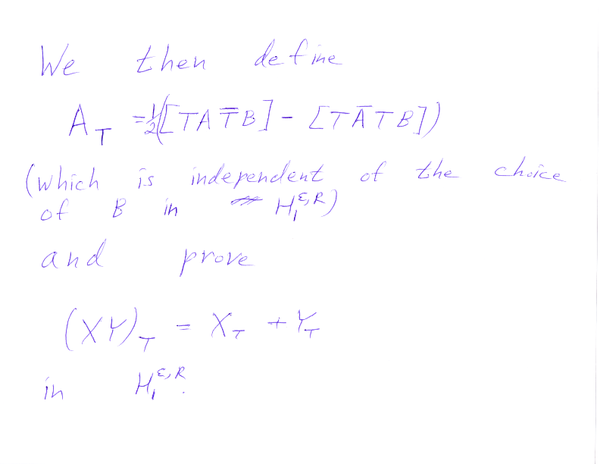 We then define
A_T = 1/2([TAT̅B] - [TA̅TB])
(which is independent of the choice
of B in H_1^{ε,R})
and prove
(XY)_T = X_T + Y_T
in H_1^{ε,R}.